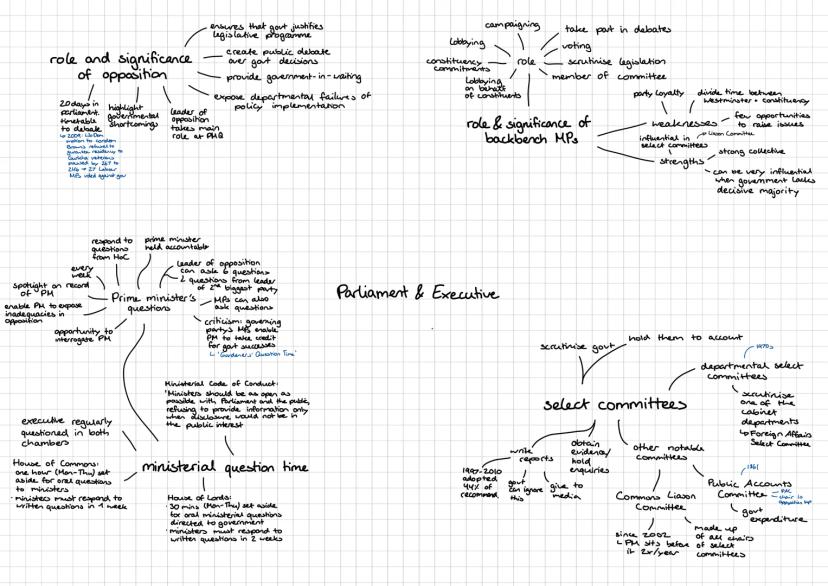 ensures that govt justifies
legislative programme
create public debate
over govt decisions
provide government-in-waiting
expose departmental failures of
policy implementation
role and significance
of opposition
20 days in
parliament.
timetable
to debate
highlight
governmental
shortcomings
leader of
opposition
takes main
role at PMQ
campaigning
lobbying
constituency
commitments
lobbying
on behalf
of constituents
role
take part in debates
voting
scrutinise legislation
member of committee
role & significance of
backbench MPs
party loyalty
divide time between
westminster + constituency
weaknesses
few opportunities
to raise issues
influential in
select committees
↳ Liaison Committee
strengths
strong collective
can be very influential
when government lacks
decisive majority
respond to
questions
from HoC
prime minister
held accountable
every
week
spotlight on record
of PM
enable PM to expose
inadequacies in
opposition
opportunity to
interrogate PM
Prime minister's
questions
leader of opposition
can ask 6 questions
2 questions from leader
of 2nd biggest party
MPs can also
ask questions
criticism: governing
party's MPs enable
PM to take credit
for govt successes
↳ 'Gardeners' Question Time'
Parliament & Executive
Ministerial Code of Conduct:
'Ministers should be as open as
possible with Parliament and the public,
refusing to provide information only
when disclosure would not be in
the public interest
executive regularly
questioned in both
chambers
ministerial question time
House of Commons:
one hour (Mon-Thu) set
aside for oral questions
to ministers
· ministers must respond to
written questions in 1 week
House of Lords:
· 30 mins (Mon-Thu) set aside
for oral ministerial questions
directed to government
· ministers must respond to
written questions in 2 weeks
scrutinise govt
hold them to account
select committees
1970s
departmental select
committees
scrutinise
one of the
cabinet
departments
↳ Foreign Affairs
Select Committee
write
reports
1997-2010
adopted
44% of
recommend.
govt
can ignore
this
give to
media
obtain
evidence/
hold
enquiries
other notable
committees
Commons Liason
Committee
since 2002
↳ PM sits before
it 2x/year
made up
of all chairs
of select
committees
1861
Public Accounts
Committee
govt
expenditure